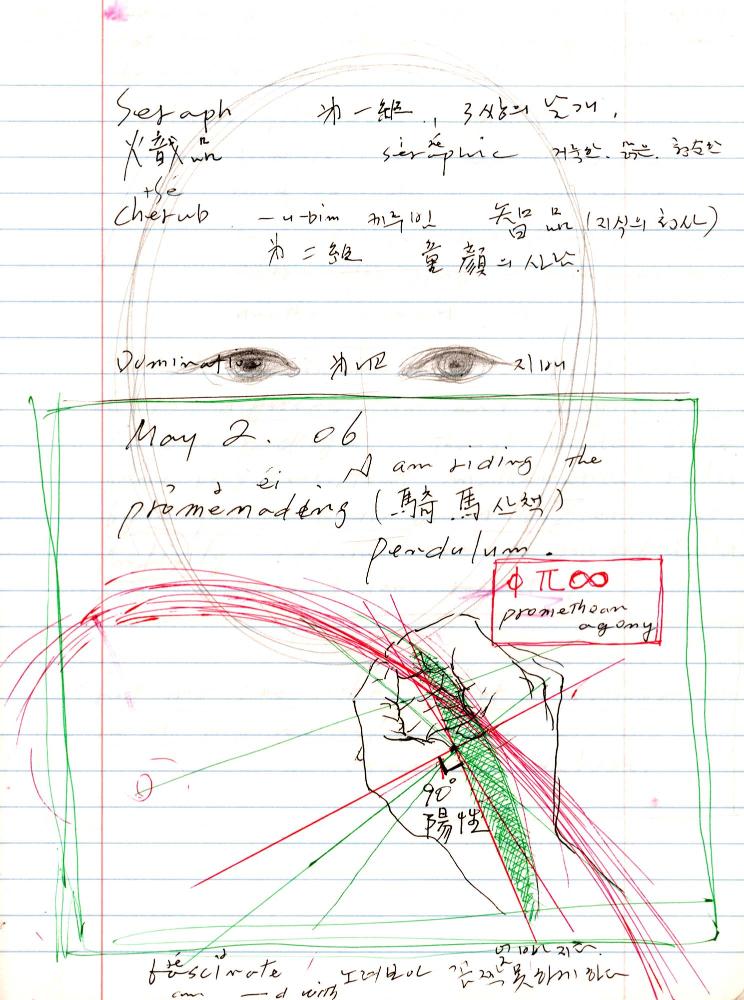 Seraph 第一組, 3쌍의 날개,
熾品 seraphic 거룩한. 맑은.
+sé
cherub -u-bim 케루빔 智品 (지식의 천사)
第二組 童顔의 사람.
Domination 第四
May 2. 06
I am riding the
promenading (騎馬 산책)
pendulum.
ϕ π ∞
promethean
agony
90°
陽性
fascinate 노려보아 꼼짝 못하게 하다
am —d with